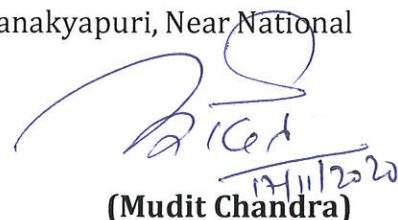 anakyapuri, Near National
17/11/2020
(Mudit Chandra)